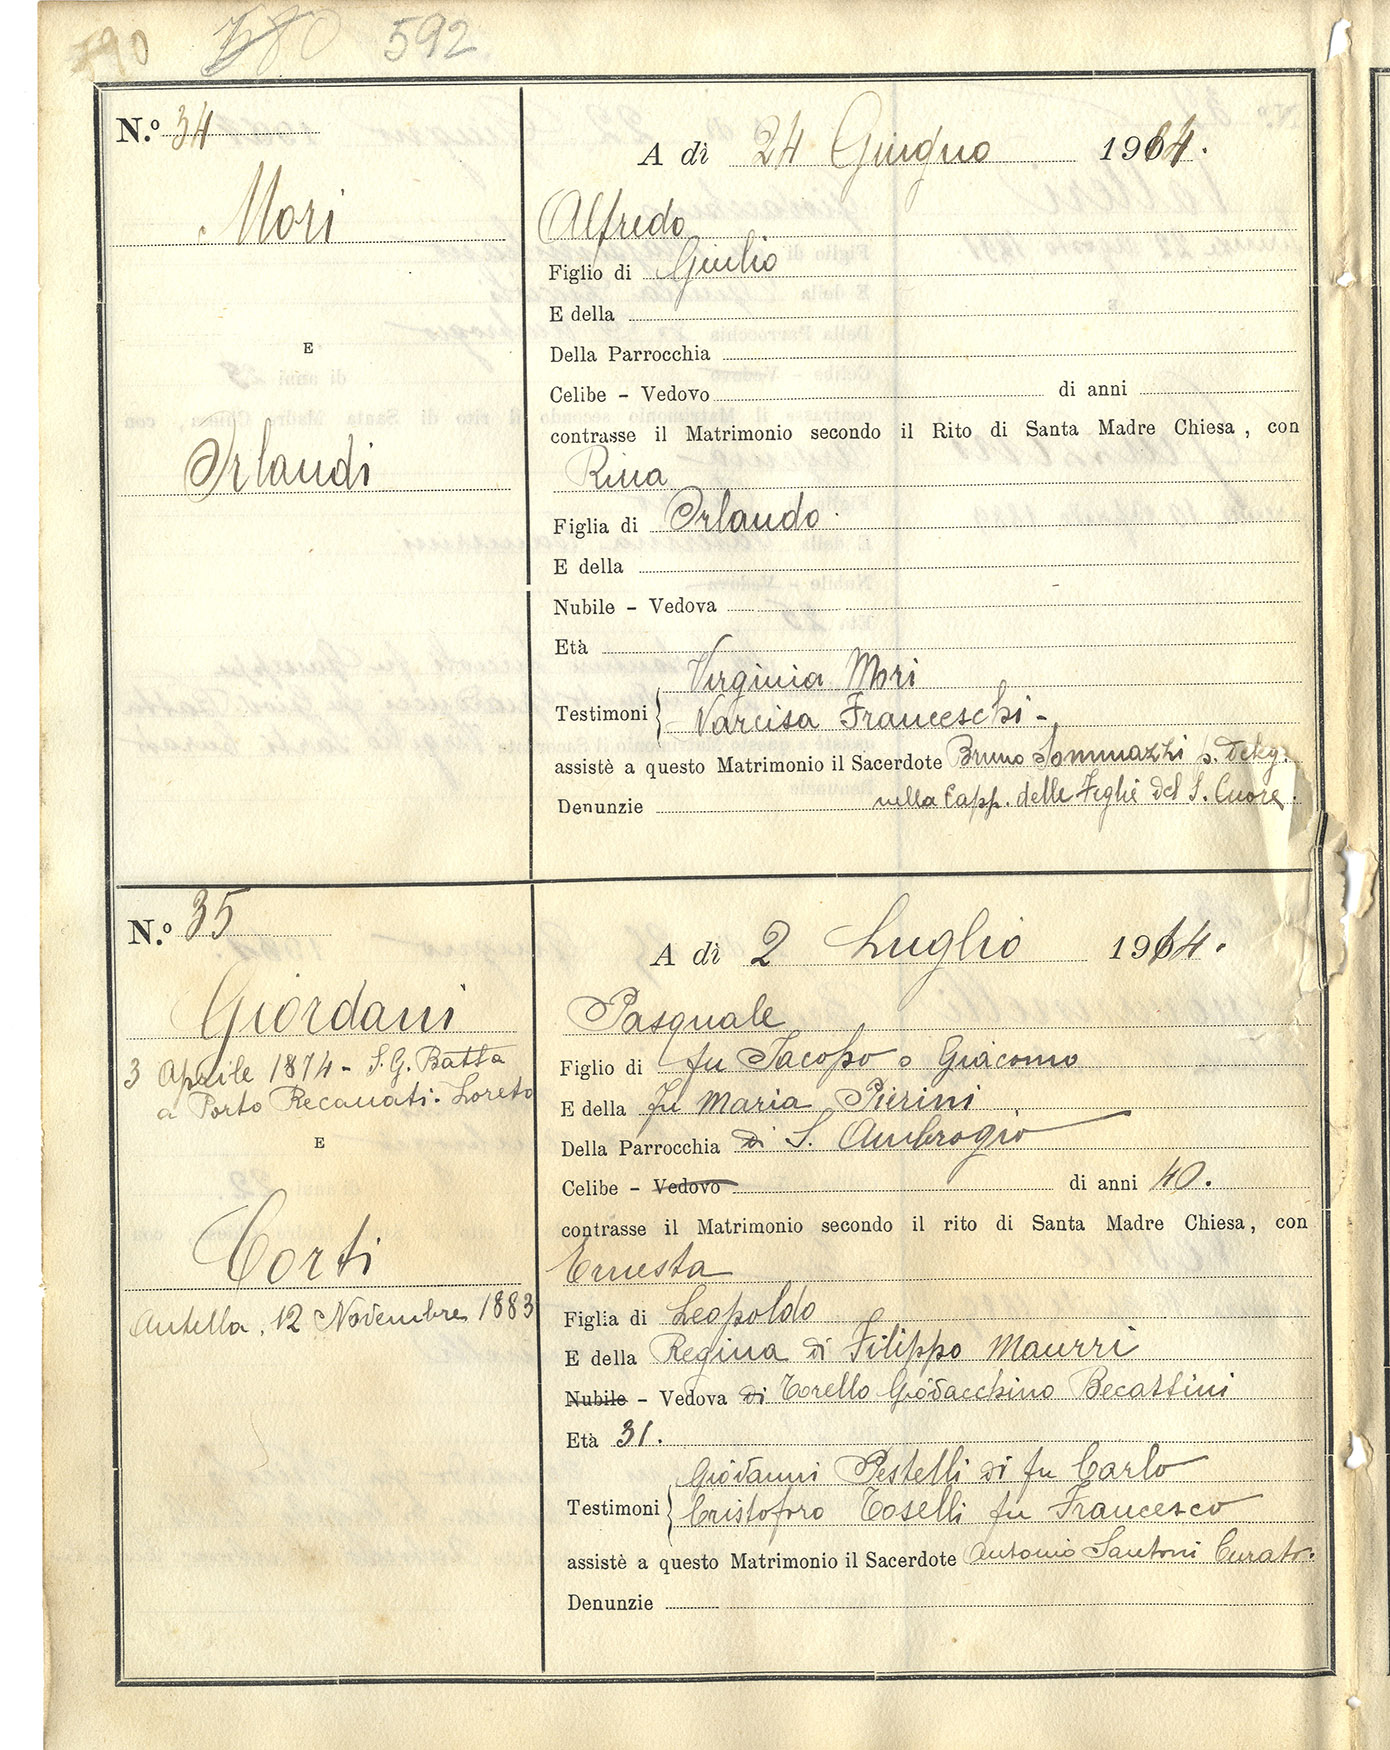 592
N.º 34
A dì 24 Giugno 1914.
Mori
Alfredo
Figlio di Giulio
E della
Della Parrocchia
E
Celibe - Vedovo di anni
contrasse il Matrimonio secondo il Rito di Santa Madre Chiesa, con
Orlandi
Rina
Figlia di Orlando.
E della
Nubile - Vedova
Età
Virginia Mori
Testimoni
Narcisa Franceschi -
assistè a questo Matrimonio il Sacerdote Bruno Sommazzi s. Deleg.
Denunzie nella Capp. delle Figlie del S. Cuore.
N.º 35
A dì 2 Luglio 1914.
Giordani
3 Aprile 1874 - S. G. Batta
a Porto Recanati. Loreto
Pasquale
Figlio di fu Jacopo o Giacomo
E della fu Maria Pierini
Della Parrocchia di S. Ambrogio
E
Celibe - Vedovo di anni 40.
contrasse il Matrimonio secondo il rito di Santa Madre Chiesa, con
Corti
Antella, 12 Novembre 1883
Ernesta
Figlia di Leopoldo
E della Regina di Filippo Maurri
Nubile - Vedova di Torello Giovacchino Becattini
Età 31.
Giovanni Pestelli di fu Carlo
Testimoni
Cristoforo Toselli fu Francesco
assistè a questo Matrimonio il Sacerdote Antonio Santoni Curato.
Denunzie